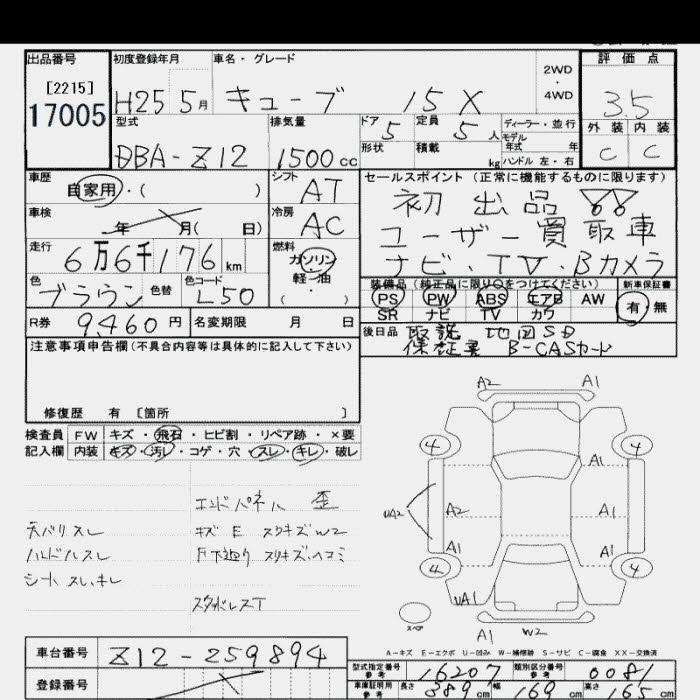 出品番号 初度登録年月 車名・グレード 2WD ・ 4WD 評価点
[2215]
17005
H25 5月 キューブ 15X 3.5
型式 排気量 ドア 5 定員 5人 ディーラー・並行 外装 内装
モデル年式 年
DBA-Z12 1500cc 形状 積載 kg ハンドル 左・右 C C
車歴 シフト セールスポイント(正常に機能するものに限ります)
自家用・( ) AT 初出品
車検 冷房 ユーザー買取車
年 月( 日) AC
走行 燃料 ナビ・TV・Bカメラ
6万6千176km ガソリン
軽油
( )
色 色替 色コード 装備品(純正品に限り○をつけてください) 新車保証書
ブラウン L50 PS PW ABS エアB AW 有・無
SR ナビ TV カワ
R券 9,460円 名変期限 月 日 後日品 取説 地図SD
保証書 B-CASカード
注意事項申告欄(不具合内容等は具体的に記入して下さい)
修復歴 有 [箇所 ]
検査員 FW キズ・飛石・ヒビ割・リペア跡・×要
記入欄 内装 キズ・汚レ・コゲ・穴・スレ・キレ・破レ
エンドパネル 歪
天バリスレ キズE スリキズW2
ハンドルスレ 下廻りスリキズ、ヘコミ
シートスレ、キレ
スタッドレスT
A2 A1
4 4
A1
UA2 A2 A1
A1 A1
4 4
UA1
スペア
A1 W2
A-キズ E-エクボ U-凹み W-補修跡 S-サビ C-腐食 XX-交換済
車台番号 Z12-259894
型式指定番号 参考 16207 類別区分番号 参考 0081
登録番号
車庫証明用 参考 長さ 389cm 幅 169cm 高さ 165cm